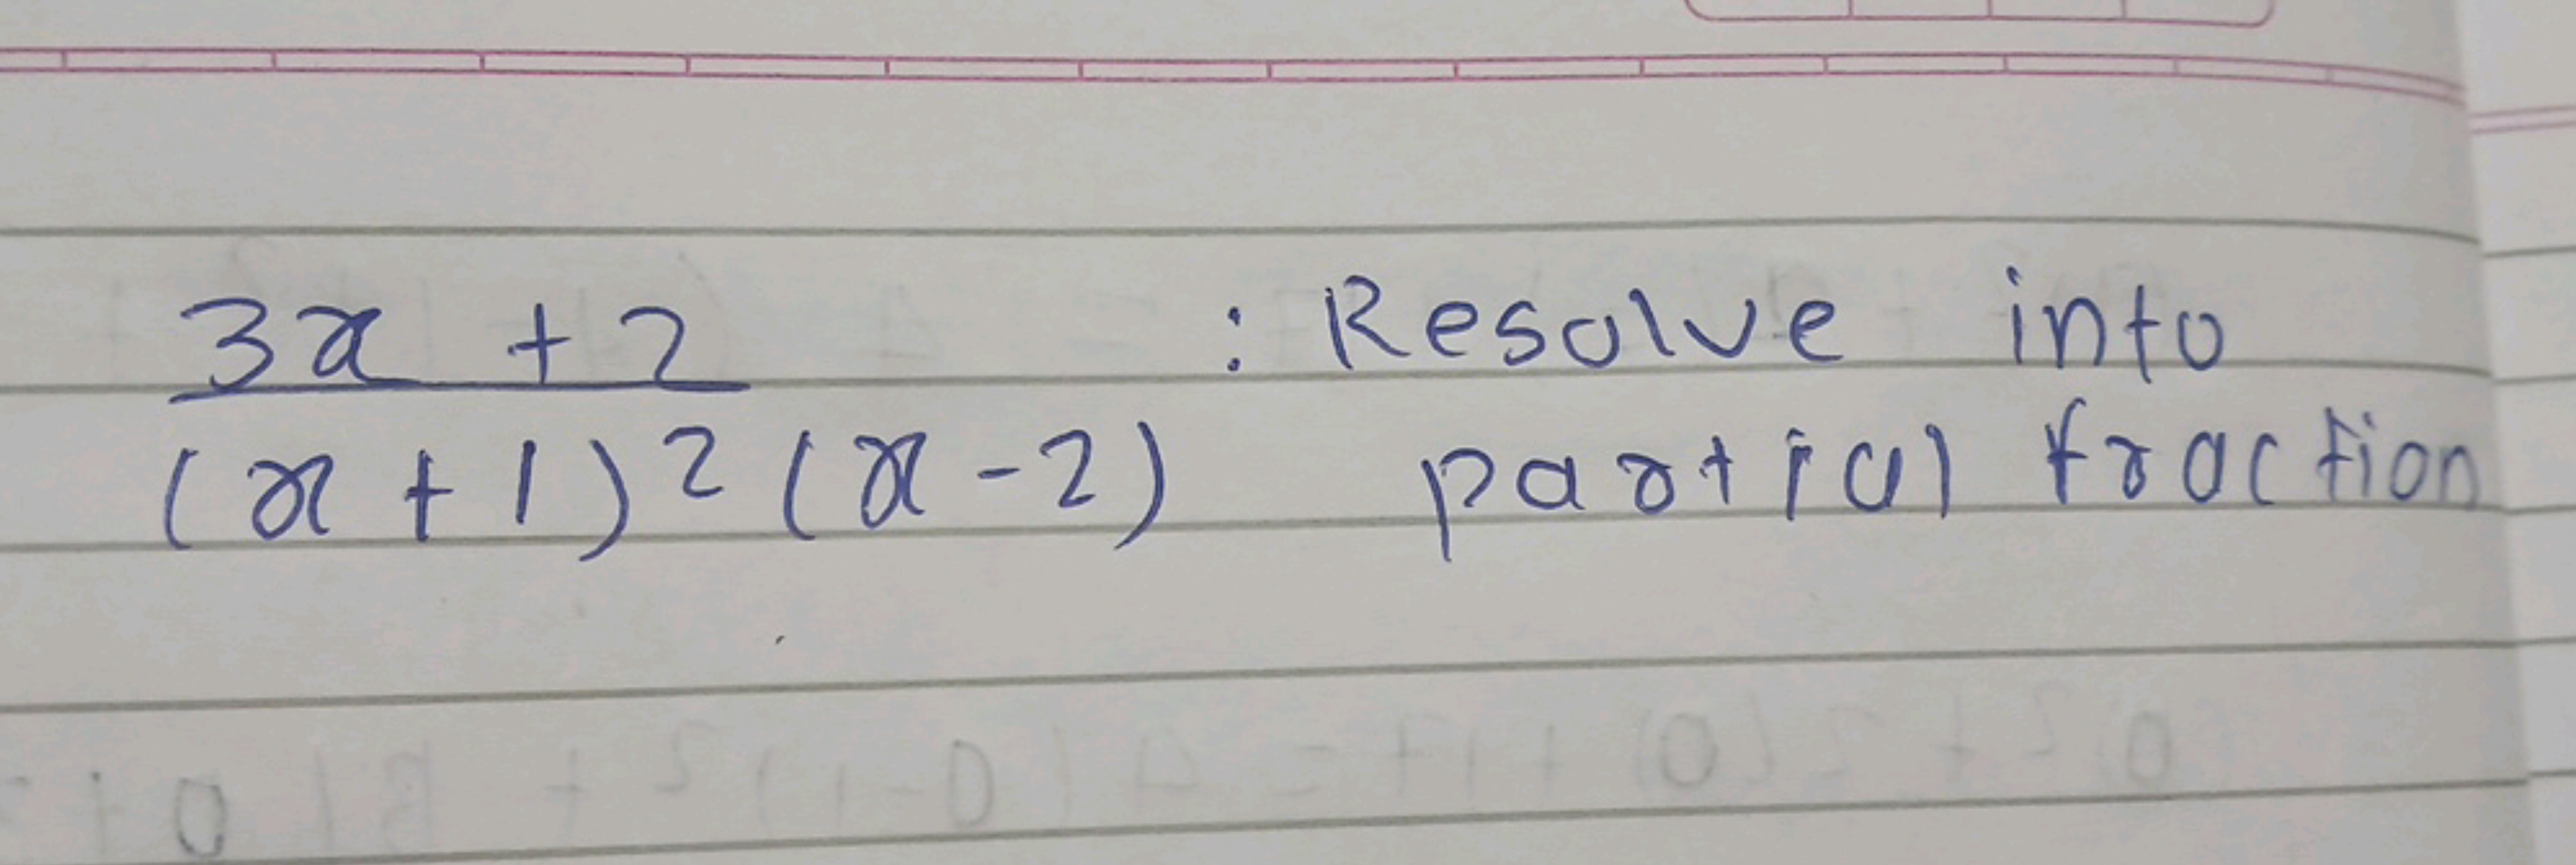 3x + 2 : Resolve into
(x + 1)² (x - 2) partial fraction